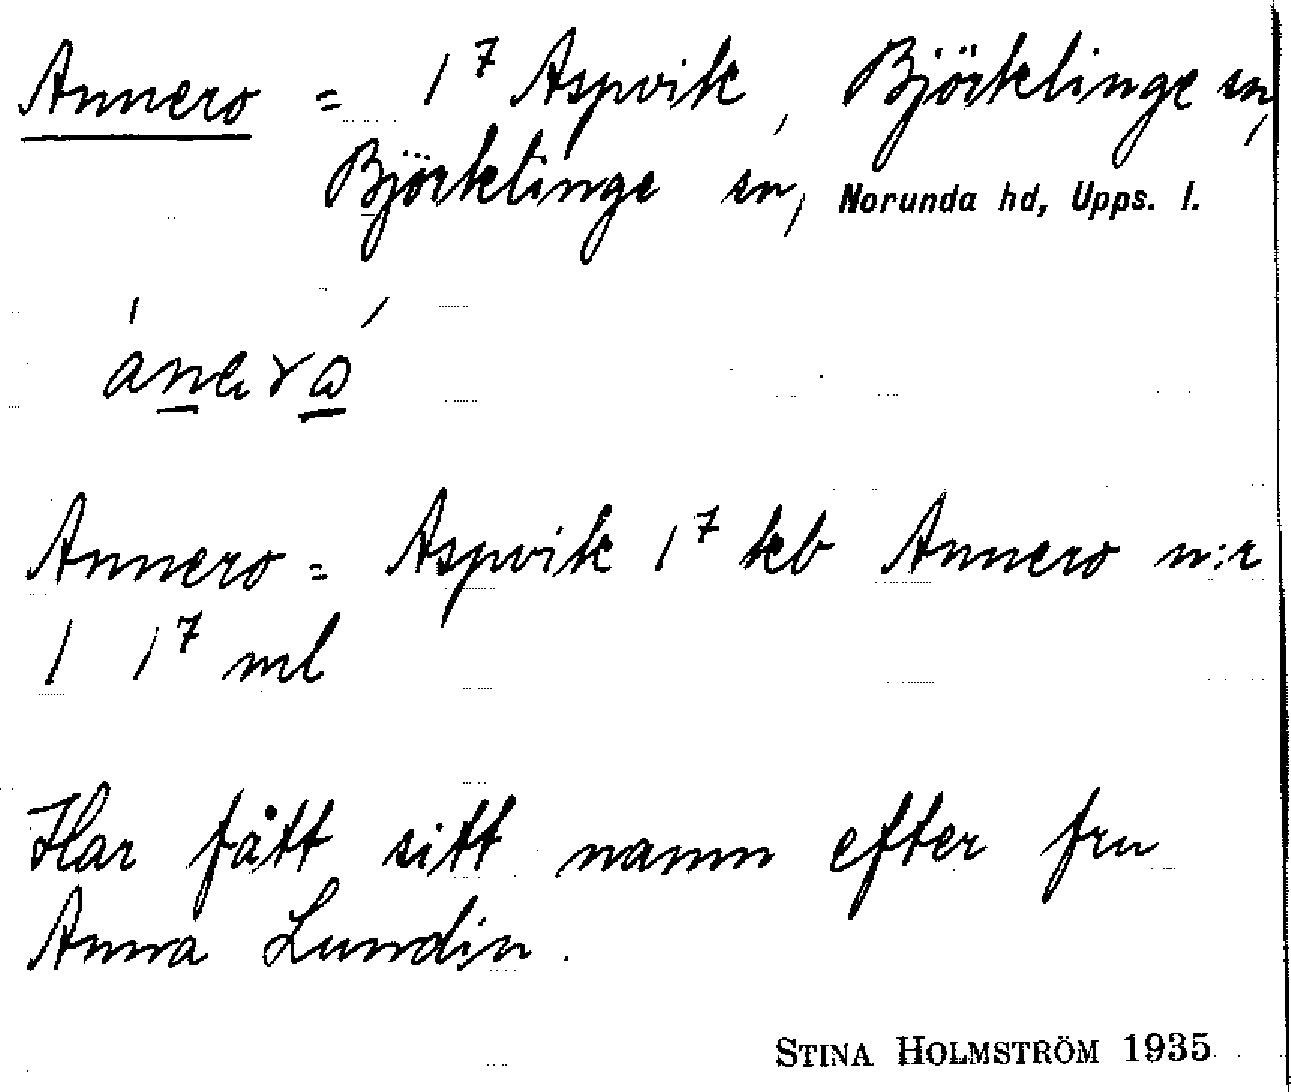 Annero = 1⁷ Aspvik, Björklinge sn,
Björklinge sn, Norunda hd, Upps. l.
Annero = Aspvik 1⁷ kb Annero n:r
1 1⁷ ml
Har fått sitt namn efter fru
Anna Lundin.
STINA HOLMSTRÖM 1935